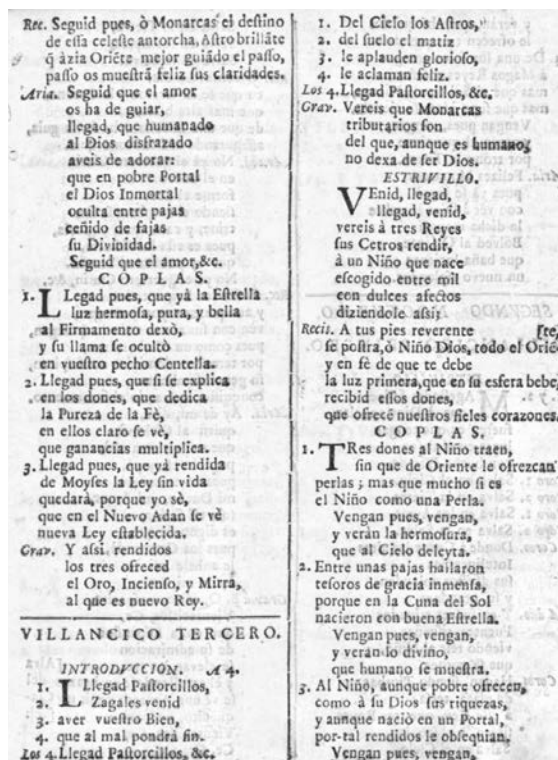 Rec. Seguid pues, ò Monarcas el deſtino
de eſſa celeſte antorcha, Aſtro brillãte
q̃ àzia Oriẽte mejor guiádo el paſſo,
paſſo os mueſtrá feliz ſus claridades.
Aria. Seguid que el amor
os ha de guiar,
llegad, que humanado
al Dios disfrazado
aveis de adorar:
que en pobre Portal
el Dios Inmortal
oculta entre pajas
ceñido de fajas
ſu Divinidad.
Seguid que el amor,&c.
COPLAS.
1. LLegad pues, que yà la Eſtrella
luz hermoſa, pura, y bella
al Firmamento dexò,
y ſu llama ſe ocultò
en vueſtro pecho Centella.
2. Llegad pues, que ſi ſe explica
en los dones, que dedica
la Pureza de la Fè,
en ellos claro ſe vè,
que ganancias multiplica.
3. Llegad pues, que yà rendida
de Moyſes la Ley ſin vida
quedarà, porque yo sè,
que en el Nuevo Adan ſe vè
nueva Ley eſtablecida.
Grav. Y aſsi rendidos
los tres ofreced
el Oro, Incienſo, y Mirra,
al que es nuevo Rey.
VILLANCICO TERCERO.
INTRODVCCION. A 4.
1. LLlegad Paſtorcillos,
2. Zagales venid
3. aver vueſtro Bien,
4. que al mal pondrà fin.
Los 4. Llegad Paſtorcillos, &c.
1. Del Cielo los Aſtros,
2. del ſuelo el matiz
3. le aplauden glorioſo,
4. le aclaman feliz.
Los 4. Llegad Paſtorcillos, &c.
Grav. Vereis que Monarcas
tributarios ſon
del que, aunque es humano,
no dexa de ſer Dios.
ESTRIVILLO.
VEnid, llegad,
llegad, venid,
vereis à tres Reyes
ſus Cetros rendir,
à un Niño que nace
eſcogido entre mil
con dulces afectos
diziendole aſsi:
Recit. A tus pies reverente [te,
ſe poſtra,ò Niño Dios, todo el Oriẽ-
y en fè de que te debe
la luz primera,que en ſu esfera bebe,
recibid eſſos dones,
que ofrecẽ nueſtros fieles corazones.
COPLAS.
1. TRes dones al Niño traen,
ſin que de Oriente le ofrezcan
perlas; mas que mucho ſi es
el Niño como una Perla.
Vengan pues, vengan,
y veràn la hermoſura,
que al Cielo deleyta.
2. Entre unas pajas hallaron
teſoros de gracia inmenſa,
porque en la Cuna del Sol
nacieron con buena Eſtrella.
Vengan pues, vengan,
y veràn lo divino,
que humano ſe mueſtra.
3. Al Niño, aunque pobre ofrecen,
como à ſu Dios ſus riquezas,
y aunque naciò en un Portal,
por-tal rendidos le obſequian.
Vengan pues, vengan,